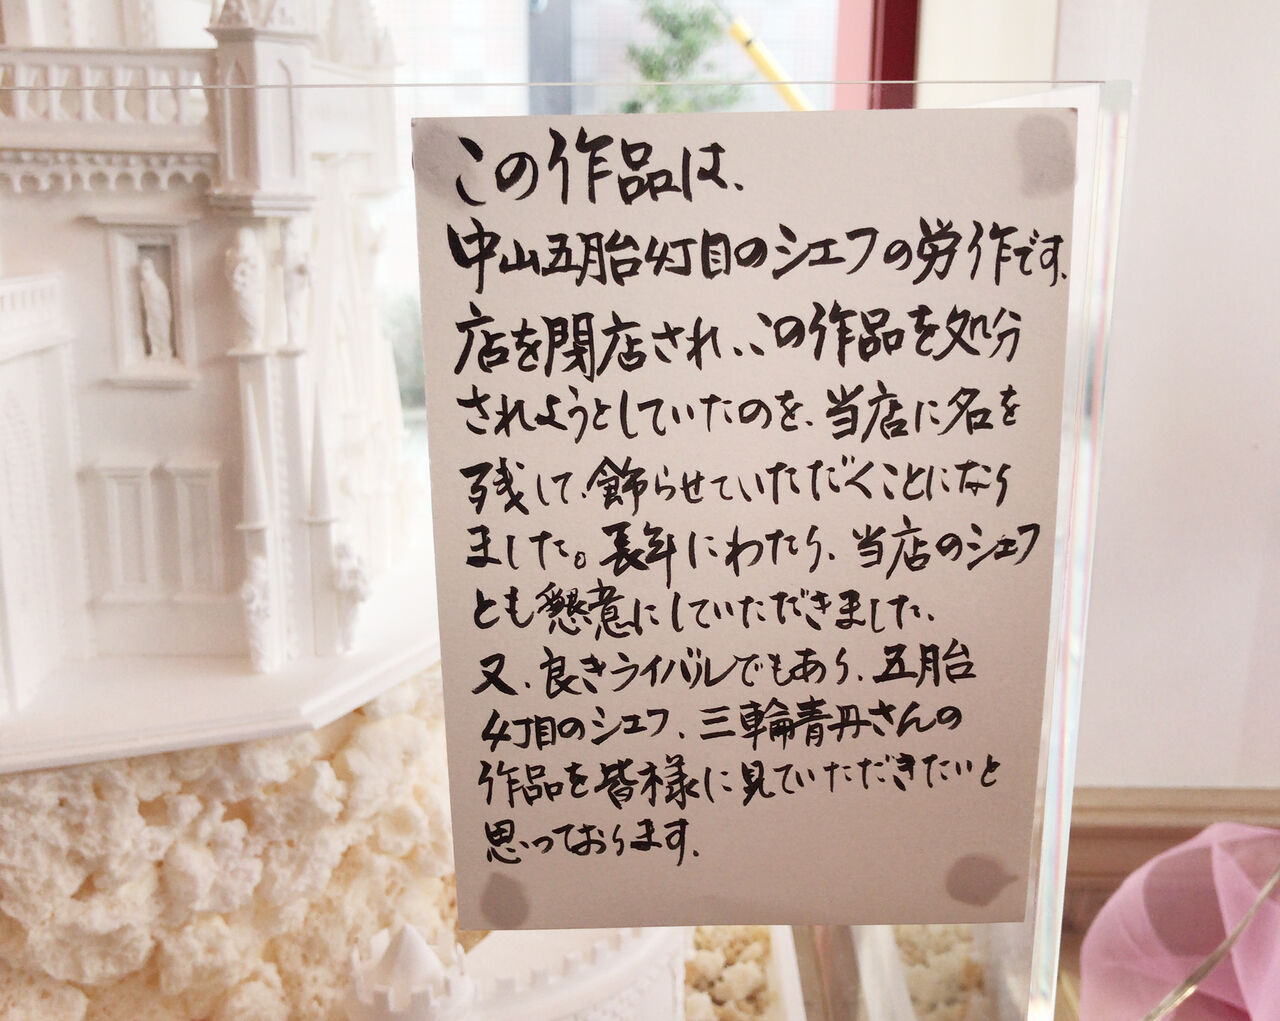 この作品は、
中山五月台4丁目のシェフの労作です。
店を閉店され、この作品を処分
されようとしていたのを、当店に名を
残して、飾らせていただくことになり
ました。長年にわたり、当店のシェフ
とも懇意にしていただきました。
又、良きライバルでもあり、五月台
4丁目のシェフ、三輪青丹さんの
作品を皆様に見ていただきたいと
思っております。